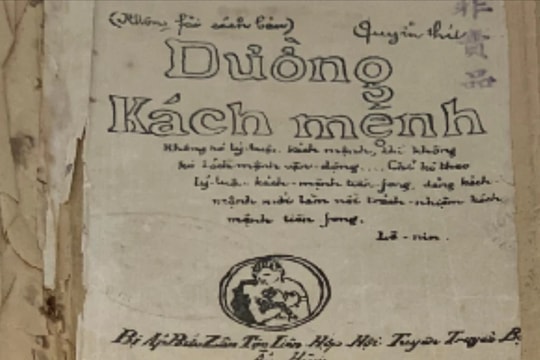 (Không fải sách bán)
Quyển thứ
非賣品
Đường
Kách mệnh
Không có lý-luận kách mệnh, thì không
có kách mệnh vận-động.... Chỉ có theo
lý-luận kách-mệnh tiền fong, đảng kách
mệnh mới làm nổi trách-nhiệm kách
mệnh tiền fong.
Lê-nin.
Bị Áp Bức Dân Tộc Liên Hợp Hội Tuyên Truyền Bộ